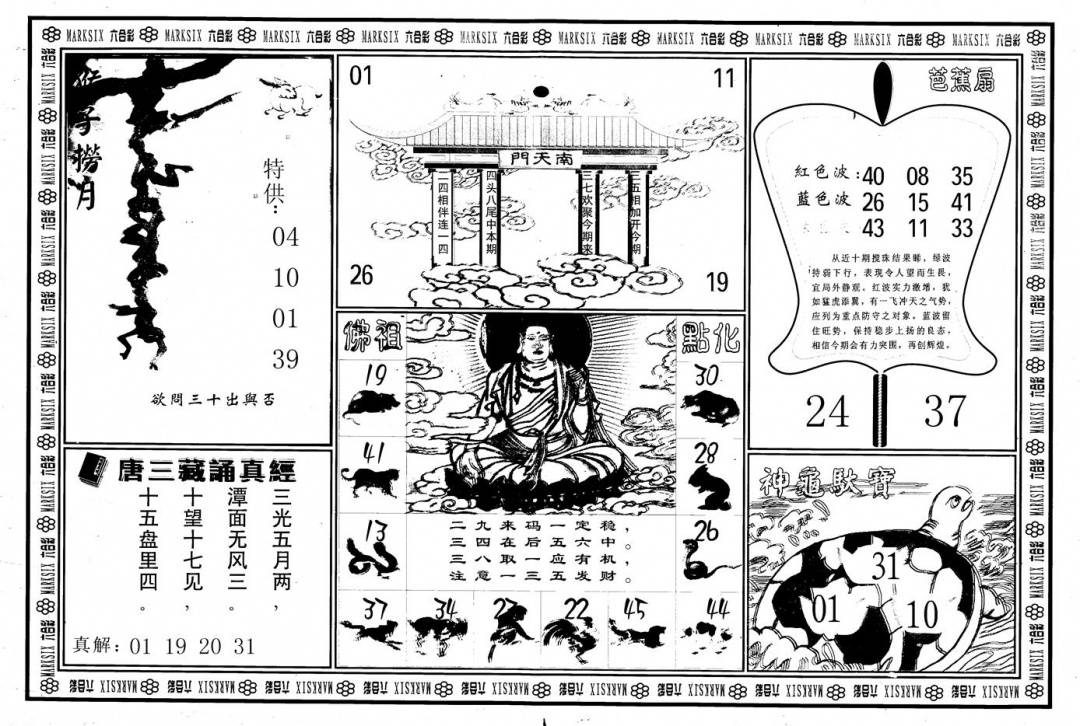 MARKSIX 六合彩 MARKSIX 六合彩 MARKSIX 六合彩 MARKSIX 六合彩 MARKSIX 六合彩 MARKSIX 六合彩 MARKSIX 六合彩 MARKSIX 六合彩 MARKSIX 六合彩 MARKSIX 六合彩
猴子撈月
特供:
04
10
01
39
欲問三十出與否
唐三藏誦真經
三光五月两,
潭面无风三。
十望十七见,
十五盘里四。
真解: 01 19 20 31
01
11
南天門
二四相伴连一四
四头八尾中本期
三七欢聚今期来
三五相加开今期
26
19
佛祖
點化
19
30
41
28
13
26
二九来码一定稳,
三四在后五六中。
三八取一应有机,
注意一三五发财。
37
34
22
45
44
芭蕉扇
紅色波: 40 08 35
蓝色波 26 15 41
43 11 33
从近十期搅珠结果睇,绿波
特弱下行,表现令人望而生畏,
宜局外静观。红波实力激增,犹
如猛虎添翼,有一飞冲天之气势,
应列为重点防守之对象。蓝波留
住旺势,保持稳步上扬的良态,
相信今期会有力突围,再创辉煌。
24
37
神龜馱寶
31
01
10